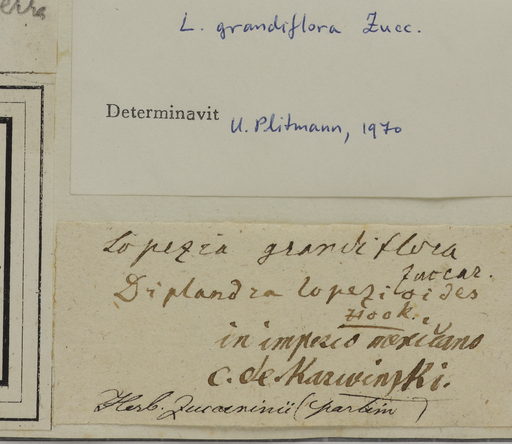 erra
L. grandiflora Zucc.
Determinavit U. Plitmann, 1970
Lopezia grandiflora
Zuccar.
Diplandra lopezioides
Hook.
in imperio mexicano
C. de Karwinski.
Herb. Zuccarinii (partim)